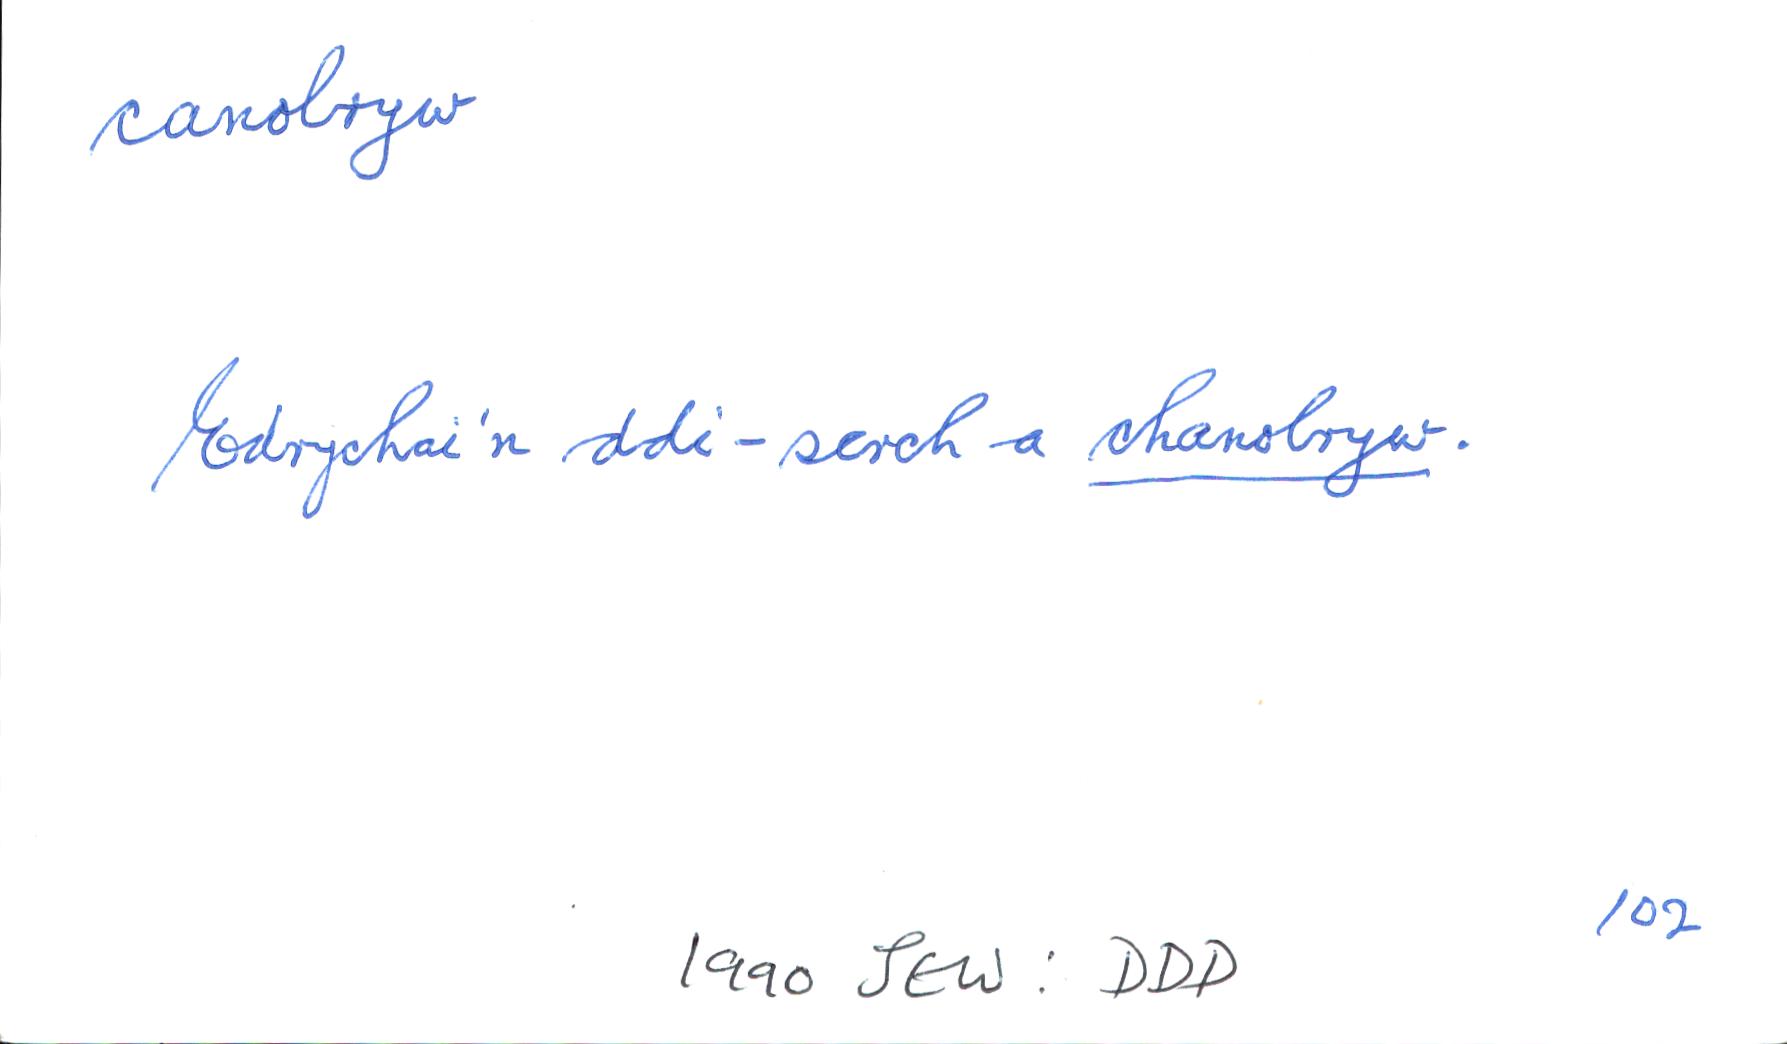 canolryw
Edrychai'n ddi-serch a chanolryw.
102
1990 JEW: DDD